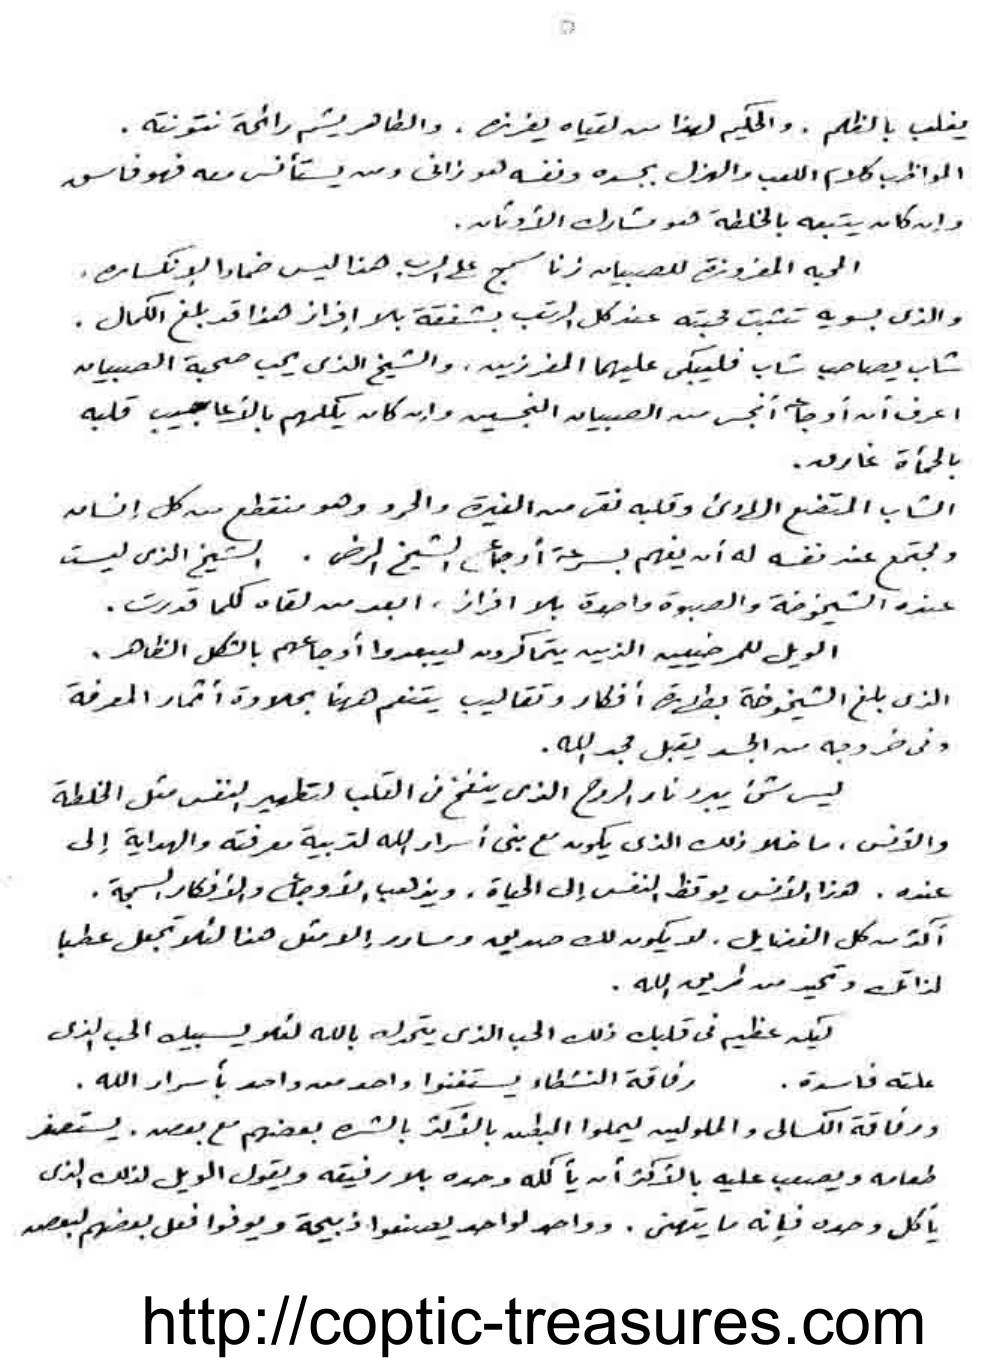 يغلب بالظلم . والحكيم لهذا من لقياه يفرزه . والطاهر يشم رائحة نتونته .
المواظب كلام اللعب والهزل بجسده ونفسه هو زانى ومن يستأنس معه فهو فاسق
وإن كان يتبعه بالخلطة هو مشارك الأوثان .
المحبه المفروزة للصبيان زنا سمج على الرب هذا ليس ضمادا لإنكساره .
والذى بسويه تثبت محبته عند كل الرتب بشفقة بلا إفراز هذا قد بلغ الكمال .
شاب يصاحب شاب فليبكى عليهما المفرزين . والشيخ الذى يحب صحبة الصبيان
اعرف أن أوجاعه أنجس من الصبيان النجسين وإن كان يكلمهم بالأعاجيب قلبه
بالحمأة غارق .
الشاب المتضع الهادئ وقلبه نقى من الغيرة والحرد وهو منقطع من كل إنسان
ومجتمع عند نفسه له أن يفهم بسرعة أوجاع الشيخ المرضى . الشيخ الذى ليست
عنده الشيخوخة والصبوة واحدة بلا افراز ، ابعد من لقاه كلما قدرت .
الويل للمرضيين الذين يتماكرون ليبعدوا أوجاعهم بالشكل الظاهر .
الذى بلغ الشيخوخة بطهارة أفكار وتقاليب يتنعم ههنا بحلاوة أثمار المعرفة
وفى خروجه من الجسد يقبل مجد الله .
ليس شئ يبرد نار الروح الذى ينفخ فى القلب لتطهير النفس مثل الخلطة
والأنس ، ما خلا ذلك الذى يكون مع بنى أسرار الله لتربية معرفته والهداية إلى
عنده . هذا الأنس يوقظ النفس إلى الحياة . ويذهب الأوجاع والأفكار السمجة .
أكثر من كل الفضايل . لا يكون لك صديق ومساور إلا مثل هذا لئلا تجعل عطبا
لذاتك وتحيد من طريق الله .
ليكن عظيم فى قلبك ذلك الحب الذى يتحدك بالله لئلا يسبيك الحب الذى
علته فاسدة . رفاقة النشطاء يستغنوا واحد من واحد بأسرار الله .
ورفاقة الكسالى والملولين ليملوا البطن بالأكثر بالشره بعضهم مع بعض . يستصغر
طعامه ويصعب عليه بالأكثر أن يأكله وحده بلا رفيقه ويقول الويل لذلك الذى
يأكل وحده فإنه ما يتهنى . وواحد لواحد يصنعوا ذبيحة ويوفوا فعل بعضهم لبعض
http://coptic-treasures.com